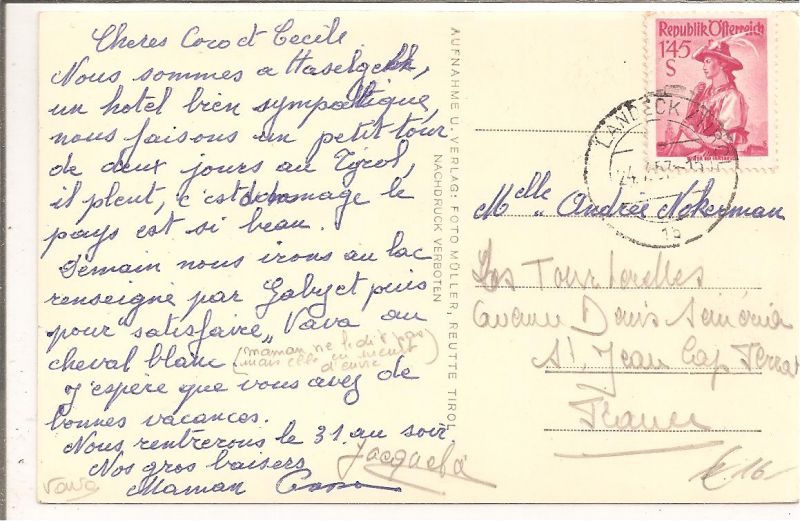 Cheres Coco et Cecile
Nous sommes a Haselgehr,
un hotel bien sympathique,
nous faisons un petit tour
de deux jours au Tyrol,
il pleut, c'est dommage le
pays est si beau.
Demain nous irons au lac
renseigné par Gaby et puis
pour satisfaire „ Vava au
cheval blanc (maman ne le dit pas
mais elle en meurt
d'envie)
J'espère que vous avez de
bonnes vacances.
Nous rentrerons le 31 au soir
Nos gros baisers
Maman
Vava
AUFNAHME U. VERLAG: FOTO MÜLLER, REUTTE TIROL
NACHDRUCK VERBOTEN
Republik Österreich
1'45
S
LANDECK
1b
Melle Andrée Nekerman
Les Tourterelles
avenue Denis Séméria
St Jean Cap Ferrat
France